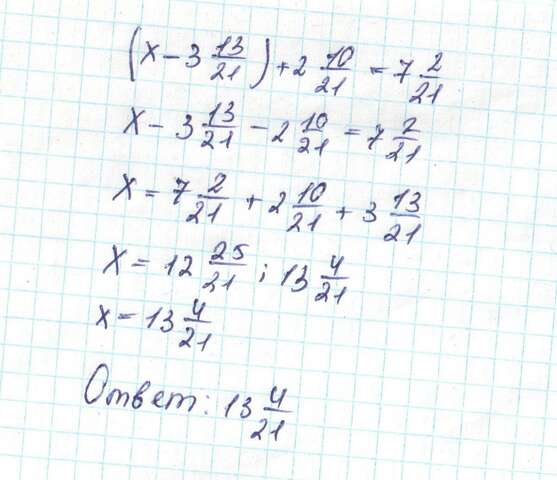 (x - 3 13/21) + 2 10/21 = 7 2/21
x - 3 13/21 - 2 10/21 = 7 2/21
x = 7 2/21 + 2 10/21 + 3 13/21
x = 12 25/21 ; 13 4/21
x = 13 4/21
Ответ: 13 4/21